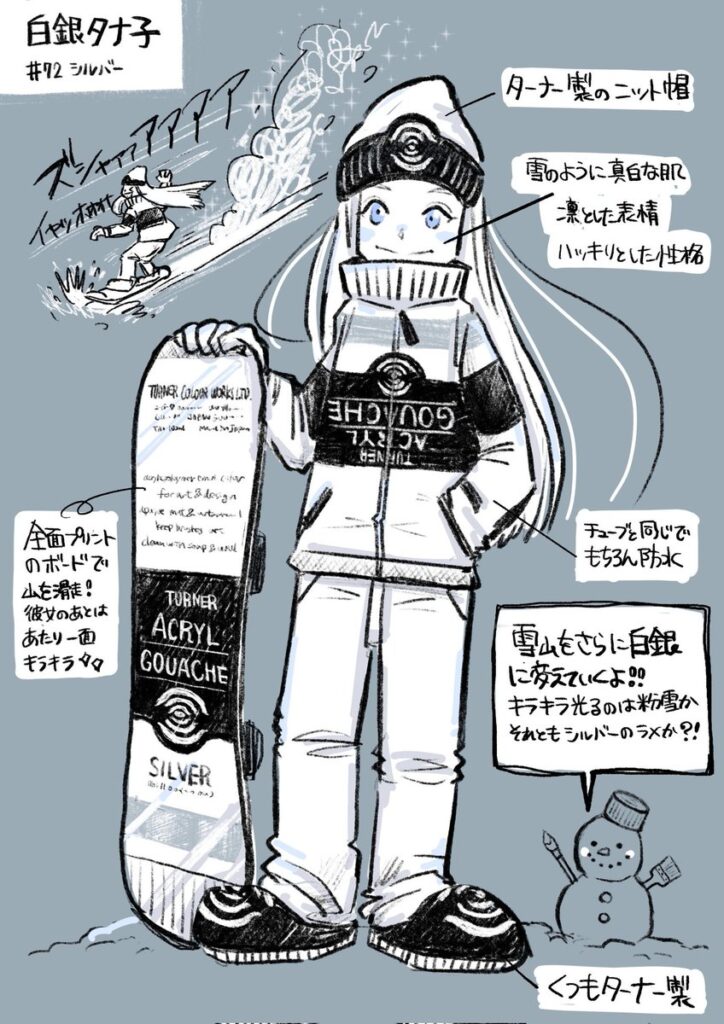 白銀タナ子
#72 シルバー
ズシャァァアアアア
イヤッホォォォ
ターナー製のニット帽
雪のように真白な肌
凛とした表情
ハッキリとした性格
TURNER
ACRYL
GOUACHE
TURNER COLOUR WORKS LTD.
MADE IN JAPAN
for art & design
TURNER
ACRYL
GOUACHE
SILVER
全面プリント
のボードで
山を滑走!
彼女のあとは
あたり一面
キラキラ
チューブと同じで
もちろん防水
雪山をさらに白銀
に変えていくよ!!
キラキラ光るのは粉雪か
それともシルバーのラメか?!
くつもターナー製